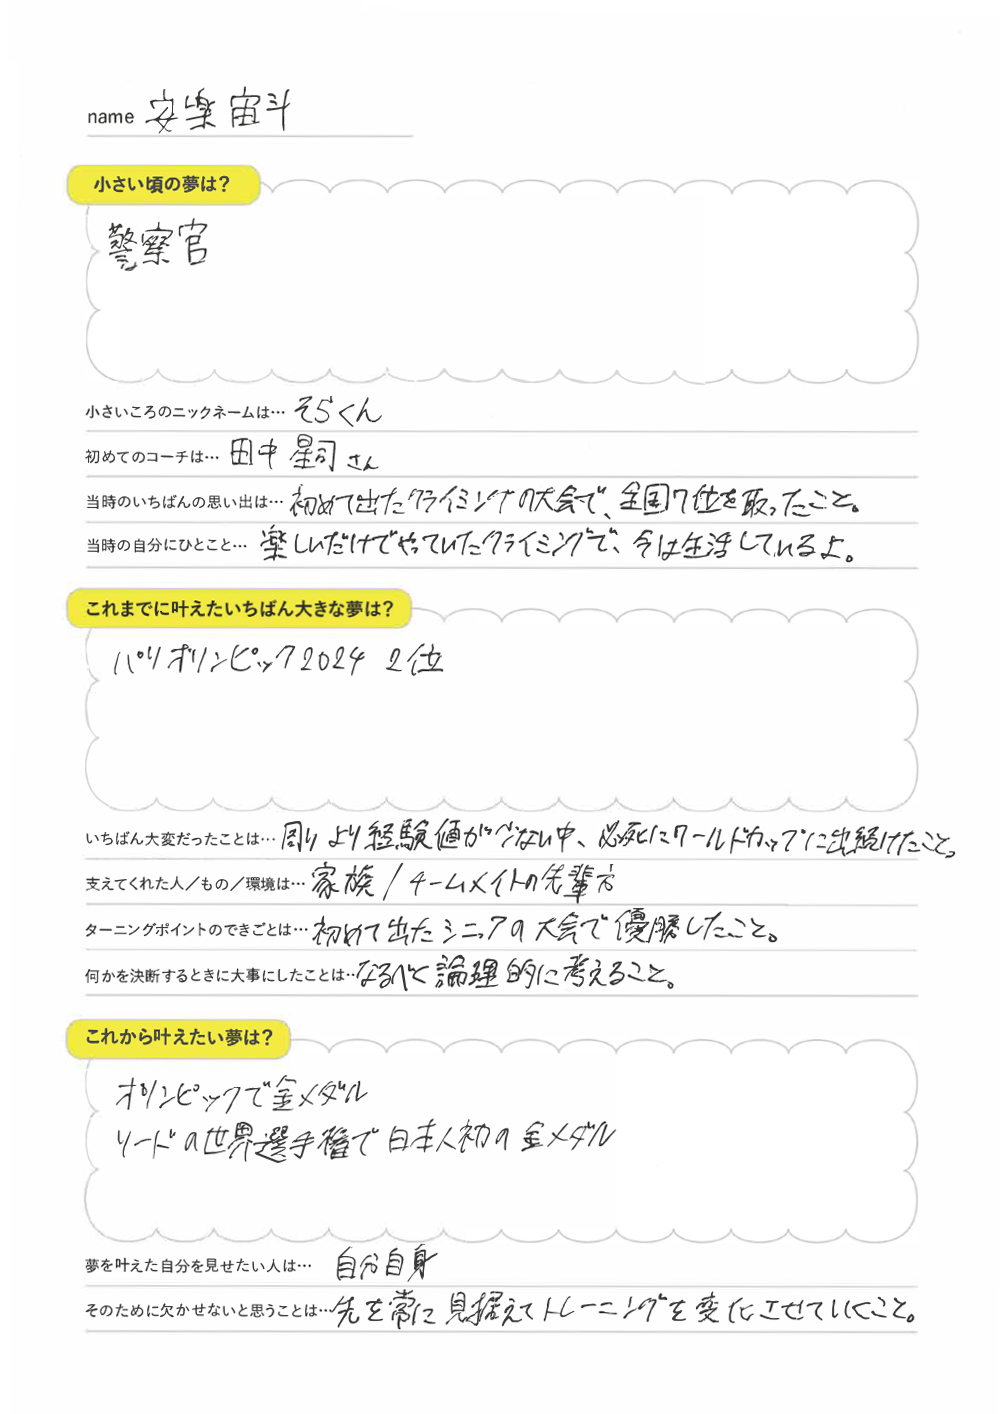 name 安楽宙斗
小さい頃の夢は？
警察官
小さいころのニックネームは… そらくん
初めてのコーチは… 田中 星司 さん
当時のいちばんの思い出は… 初めて出たクライミングの大会で、全国7位を取ったこと。
当時の自分にひとこと… 楽しいだけでやっていたクライミングで、今は生活しているよ。
これまでに叶えたいちばん大きな夢は？
パリオリンピック2024 2位
いちばん大変だったことは… 周りより経験値が少ない中、必死にワールドカップに出続けたこと。
支えてくれた人／もの／環境は… 家族／チームメイトの先輩方
ターニングポイントのできごとは… 初めて出たシニアの大会で優勝したこと。
何かを決断するときに大事にしたことは… なるべく論理的に考えること。
これから叶えたい夢は？
オリンピックで金メダル
リードの世界選手権で日本人初の金メダル
夢を叶えた自分を見せたい人は… 自分自身
そのために欠かせないと思うことは… 先を常に見据えてトレーニングを変化させていくこと。